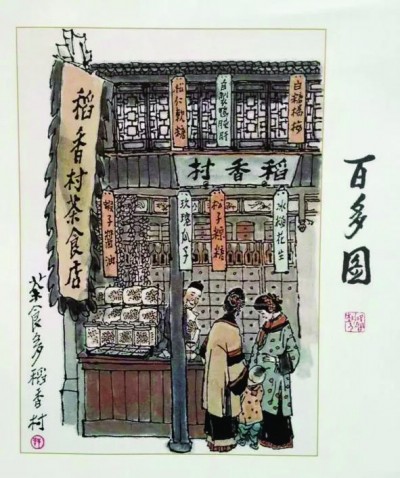 百多图
稻香村茶食店
白糖楊梅
自製鴨肫肝
松仁軟糖
稻香村
冰糖花生
松子粽糖
玫瑰瓜子
蝦子醬油
茶食多稻香村